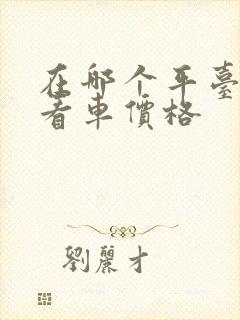 在那个平臺
看車價格
劉麗才